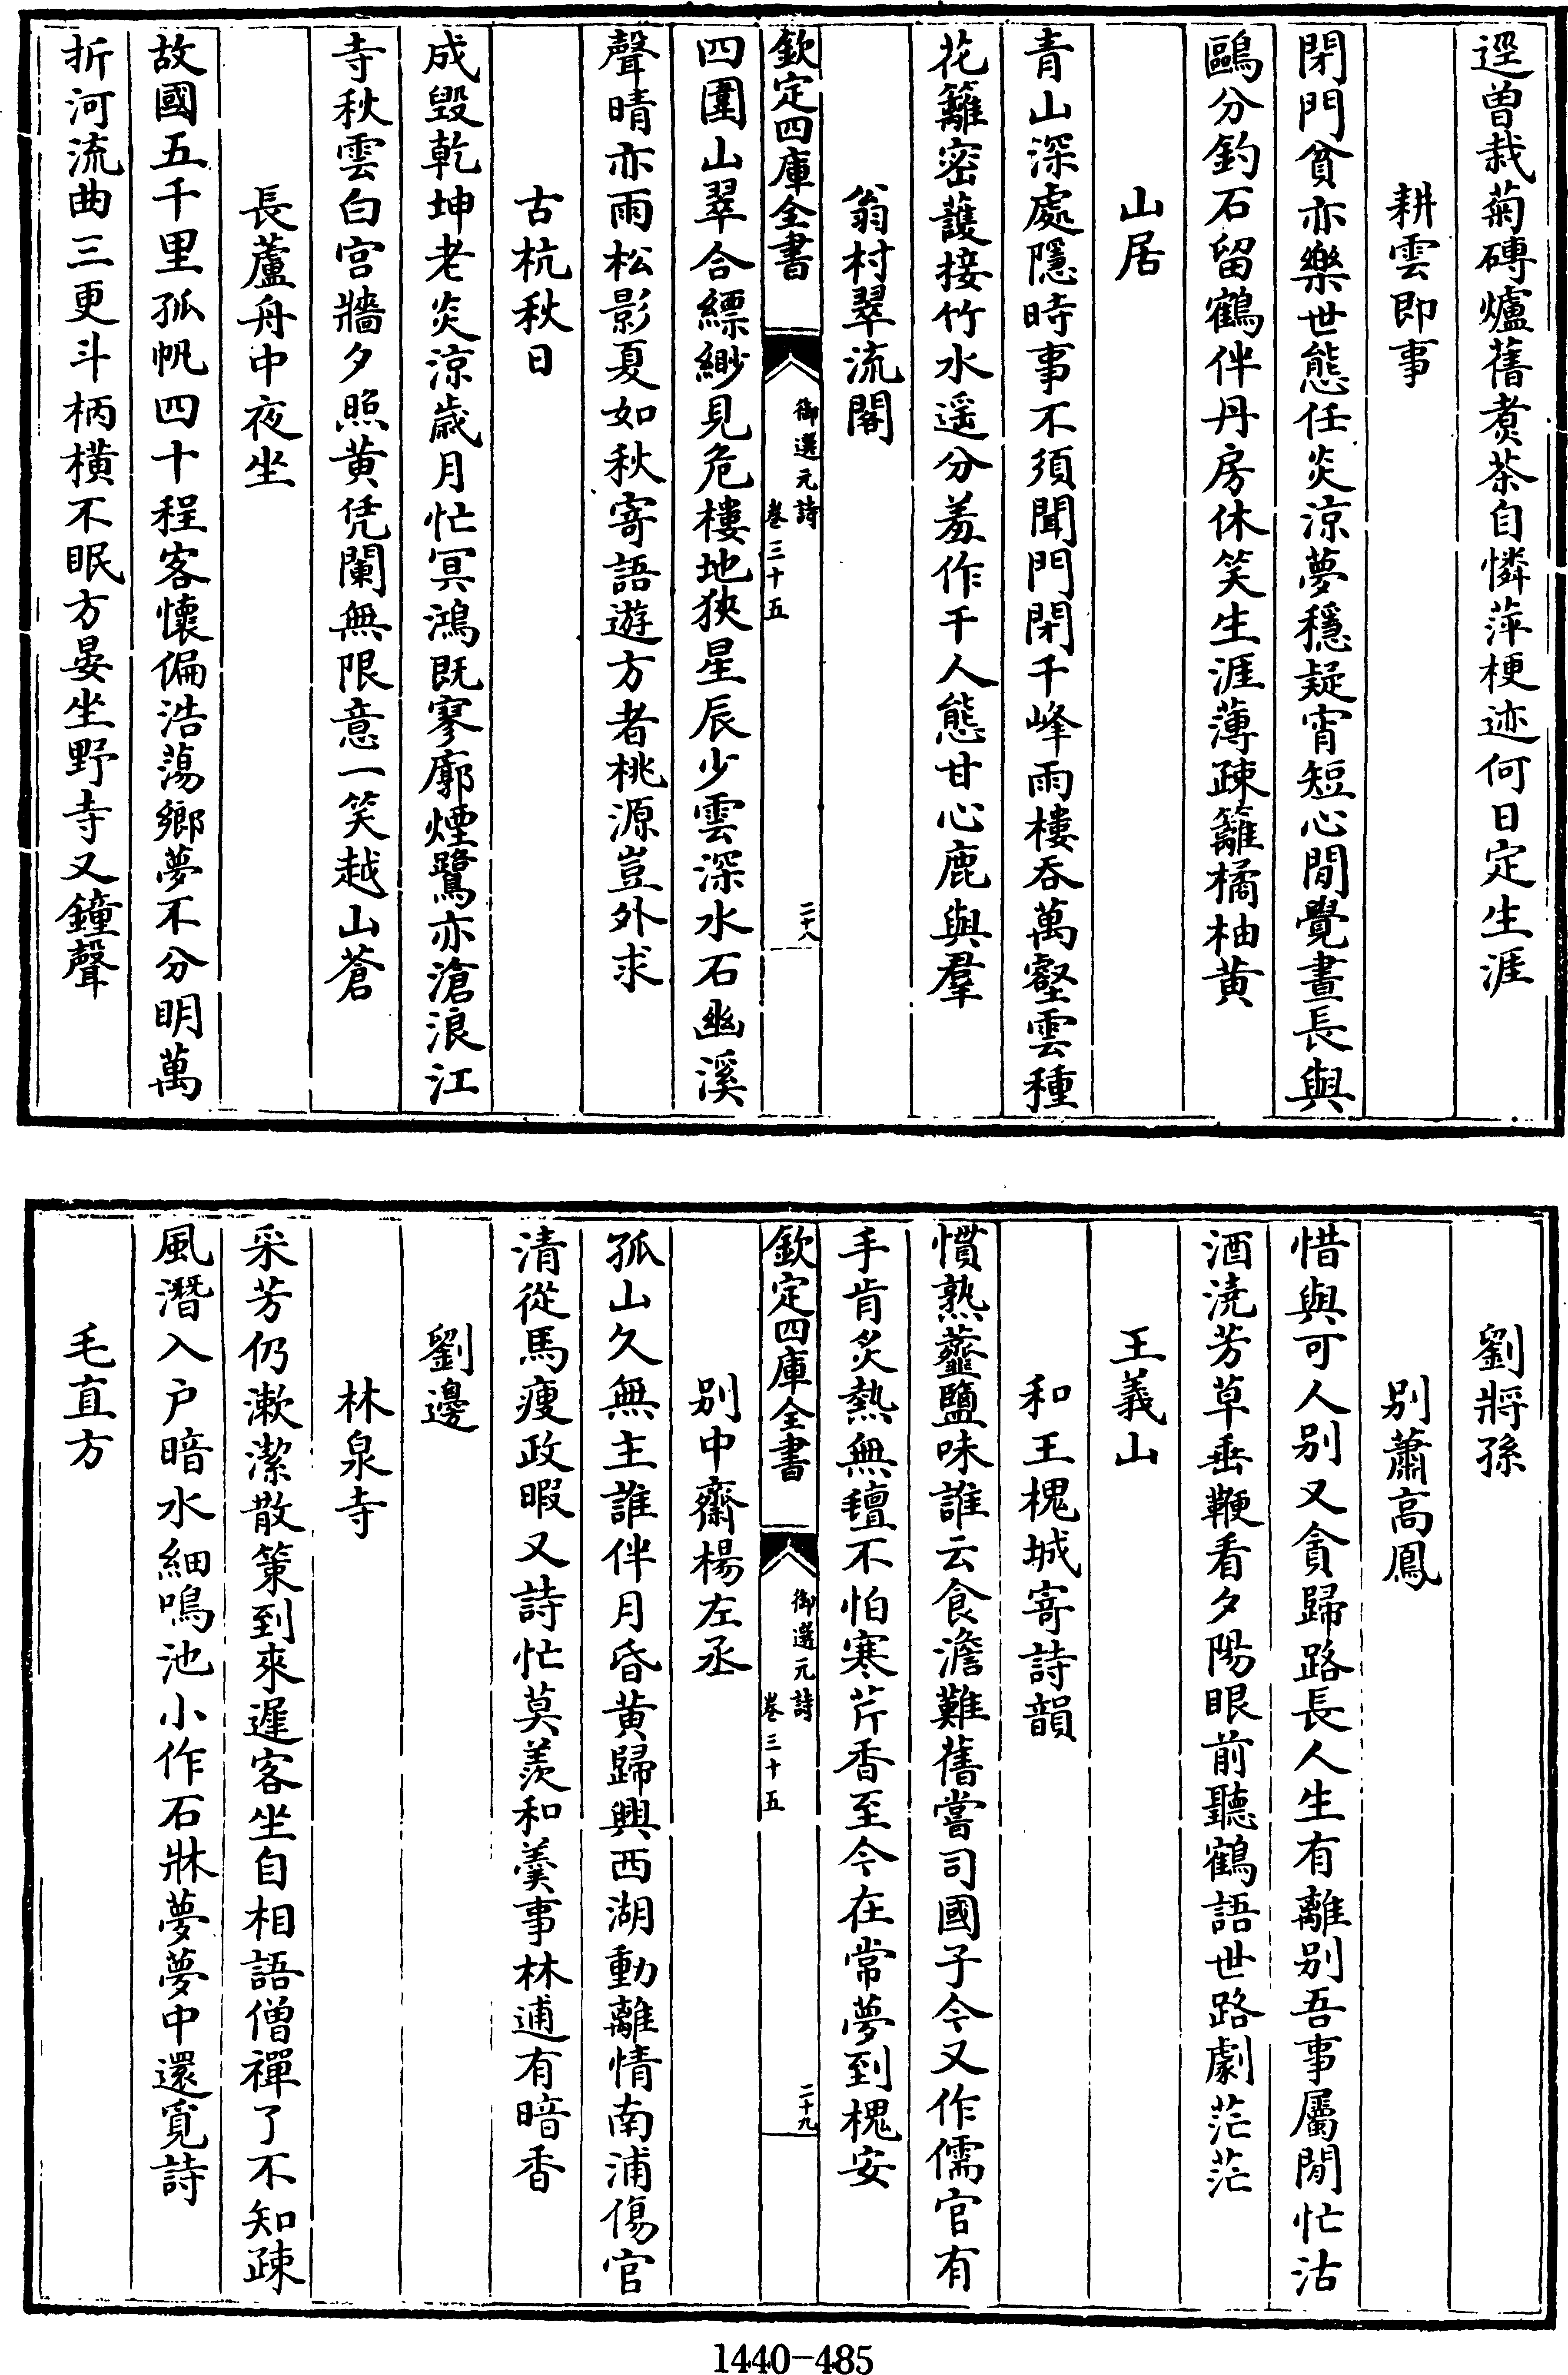 逕曾栽菊磚爐舊煮茶自憐萍梗迹何日定生涯
耕雲即事
閉門貧亦樂世態任炎涼夢穩疑宵短心閒覺晝長與
鷗分釣石留鶴伴丹房休笑生涯薄疎籬橘柚黄
山居
青山深處隱時事不須聞門閉千峰雨樓吞萬壑雲種
花籬密護接竹水遥分羞作千人態甘心鹿與羣
翁村翠流閣
欽定四庫全書
御選元詩
卷三十五
二十八
四圍山翠合縹緲見危樓地狹星辰少雲深水石幽溪
聲晴亦雨松影夏如秋寄語遊方者桃源豈外求
古杭秋日
成毀乾坤老炎涼歲月忙冥鴻既寥廓煙鷺亦滄浪江
寺秋雲白宫牆夕照黄凭闌無限意一笑越山蒼
長蘆舟中夜坐
故國五千里孤帆四十程客懷偏浩蕩鄉夢不分明萬
折河流曲三更斗柄横不眠方晏坐野寺又鐘聲
劉將孫
别蕭高鳳
惜與可人别又貪歸路長人生有離别吾事屬閒忙沽
酒澆芳草垂鞭看夕陽眼前聽鶴語世路劇茫茫
王義山
和王槐城寄詩韻
慣熟虀鹽味誰云食澹難舊嘗司國子今又作儒官有
手肯炙熱無氊不怕寒芹香至今在常夢到槐安
欽定四庫全書
御選元詩
卷三十五
二十九
别中齋楊左丞
孤山久無主誰伴月昏黄歸興西湖動離情南浦傷官
清從馬瘦政暇又詩忙莫羡和羹事林逋有暗香
劉邊
林泉寺
采芳仍漱潔散策到來遲客坐自相語僧禪了不知疎
風潛入户暗水細鳴池小作石牀夢夢中還覓詩
毛直方
1440-485